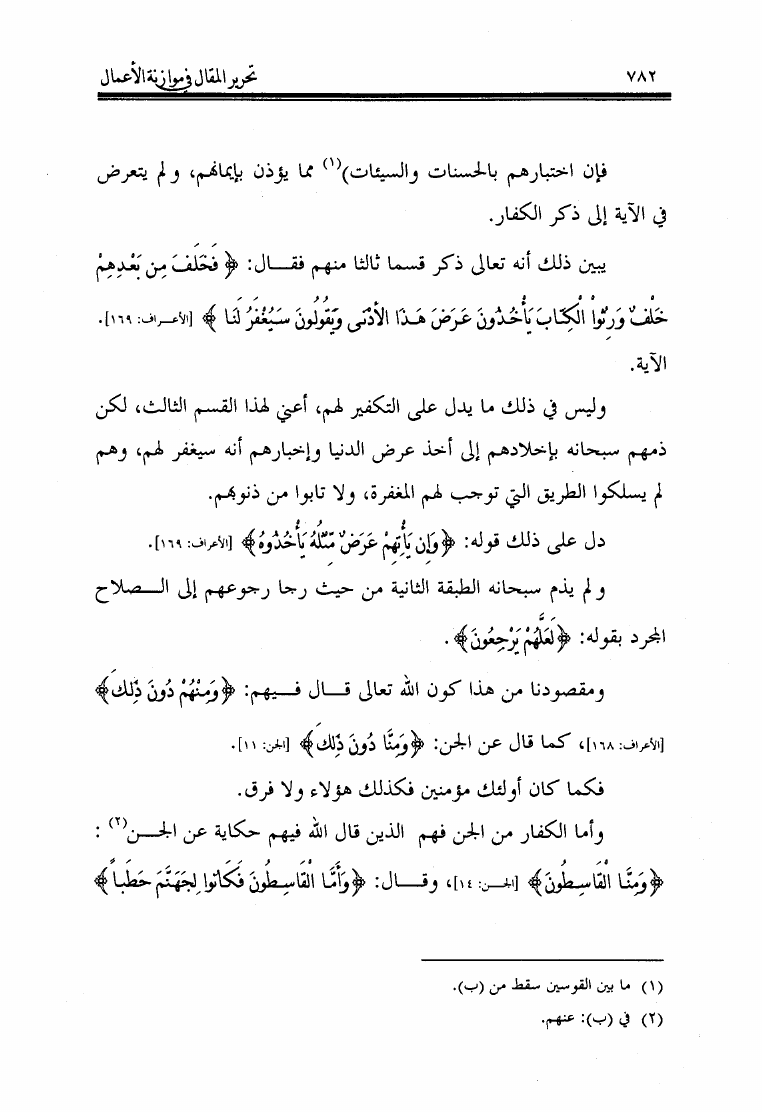 ٧٨٢
تحرير المقال في موازنة الأعمال
فإن اختبارهم بالحسنات والسيئات)(١) مما يؤذن بإيمانهم، ولم يتعرض
في الآية إلى ذكر الكفار.
يبين ذلك أنه تعالى ذكر قسما ثالثا منهم فقال: ﴿ فَخَلَفَ مِن بَعْدِهِمْ
خَلْفٌ وَرِثُواْ الْكِتَابَ يَأْخُذُونَ عَرَضَ هَـذَا الأَدْنَى وَيَقُولُونَ سَيُغْفَرُ لَنَا ﴾ [الأعراف: ١٦٩].
الآية.
وليس في ذلك ما يدل على التكفير لهم، أعني لهذا القسم الثالث، لكن
ذمهم سبحانه بإخلادهم إلى أخذ عرض الدنيا وإخبارهم أنه سيغفر لهم، وهم
لم يسلكوا الطريق التي توجب لهم المغفرة، ولا تابوا من ذنوبهم.
دل على ذلك قوله: ﴿وَإِن يَأْتِهِمْ عَرَضٌ مِّثْلُهُ يَأْخُذُوهُ﴾ [الأعراف: ١٦٩].
ولم يذم سبحانه الطبقة الثانية من حيث رجا رجوعهم إلى الصلاح
المجرد بقوله: ﴿لَعَلَّهُمْ يَرْجِعُونَ﴾.
ومقصودنا من هذا كون الله تعالى قال فيهم: ﴿وَمِنْهُمْ دُونَ ذَلِكَ﴾
[الأعراف: ١٦٨]، كما قال عن الجن: ﴿وَمِنَّا دُونَ ذَلِكَ﴾ [الجن: ١١].
فكما كان أولئك مؤمنين فكذلك هؤلاء ولا فرق.
وأما الكفار من الجن فهم الذين قال الله فيهم حكاية عن الجن(٢) :
﴿وَمِنَّا الْقَاسِطُونَ﴾ [الجن: ١٤]، وقال: ﴿وَأَمَّا الْقَاسِطُونَ فَكَانُوا لِجَهَنَّمَ حَطَباً﴾
(١) ما بين القوسين سقط من (ب).
(٢) في (ب): عنهم.